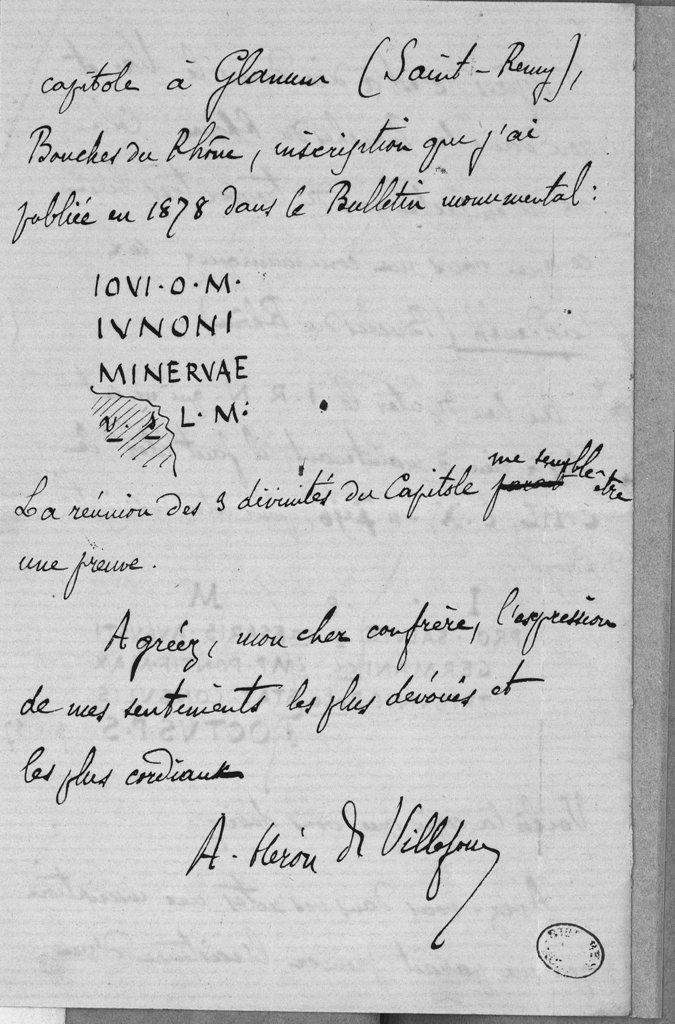 capitole à Glanum (Saint-Remy),
Bouches du Rhône, inscription que j'ai
publiée en 1878 dans le Bulletin monumental :
IOVI·O·M·
IVNONI
MINERVAE
V. S. L·M:
La réunion des 3 divinités du Capitole parait me semble être
une preuve.
Agréez, mon cher confrère, l'expression
de mes sentiments les plus dévoués et
les plus cordiaux
A. Héron de Villefosse